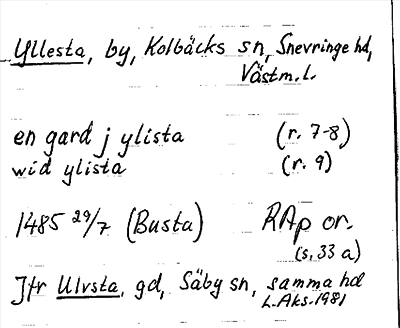 Yllesta, by, Kolbäcks sn, Snevringe hd,
Västm. l.
en gard j ylista (r. 7-8)
wid ylista (r. 9)
1485 29/7 (Busta) RAp or.
(s. 33 a)
Jfr Ulvsta, gd, Säby sn, samma hd
L. Aks. 1981